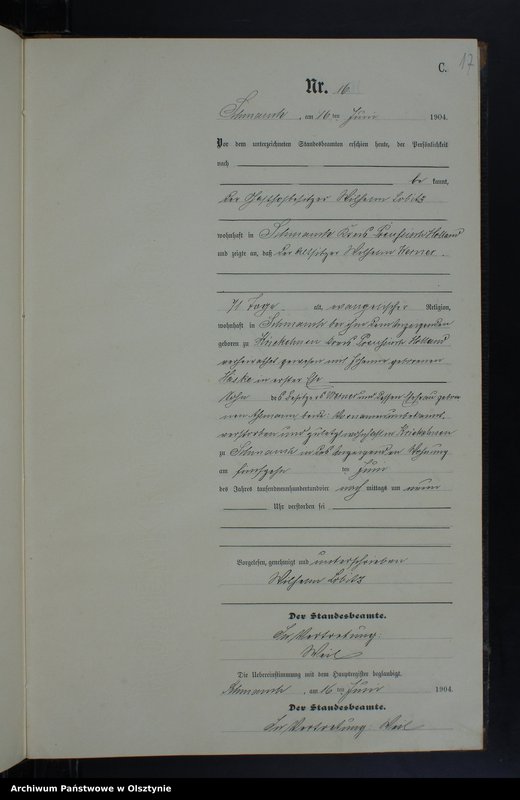 C. 17
Nr. 16
Schmauch, am 16 ten Juni 1904.
Vor dem unterzeichneten Standesbeamten erschien heute, der Persönlichkeit
nach
be kannt,
der Gasthofbesitzer Wilhelm Lobitz
wohnhaft in Schmauch Kreis Preußisch Holland
und zeigte an, daß der Altsitzer Wilhelm Werner
71 Jahre alt, evangelischer Religion,
wohnhaft in Schmauch bei ihm dem Anzeigenden
geboren zu Kreis Preußisch Holland
verheirathet gewesen mit geborenen
in erster Ehe
Sohn des Besitzers Werner und dessen Ehefrau gebor
nen beide Vornamen unbekannt,
verstorben und zuletzt wohnhaft in
zu Schmauch in des Anzeigenden Wohnung
am fünfzehn ten Juni
des Jahres tausendneunhundertundvier nach mittags um neun
Uhr verstorben sei
Vorgelesen, genehmigt und unterschrieben
Wilhelm Lobitz
Der Standesbeamte.
In Vertretung:
Weil
Die Uebereinstimmung mit dem Hauptregister beglaubigt.
Schmauch, am 16 ten Juni 1904.
Der Standesbeamte.
In Vertretung: Weil
Archiwum Państwowe w Olsztynie